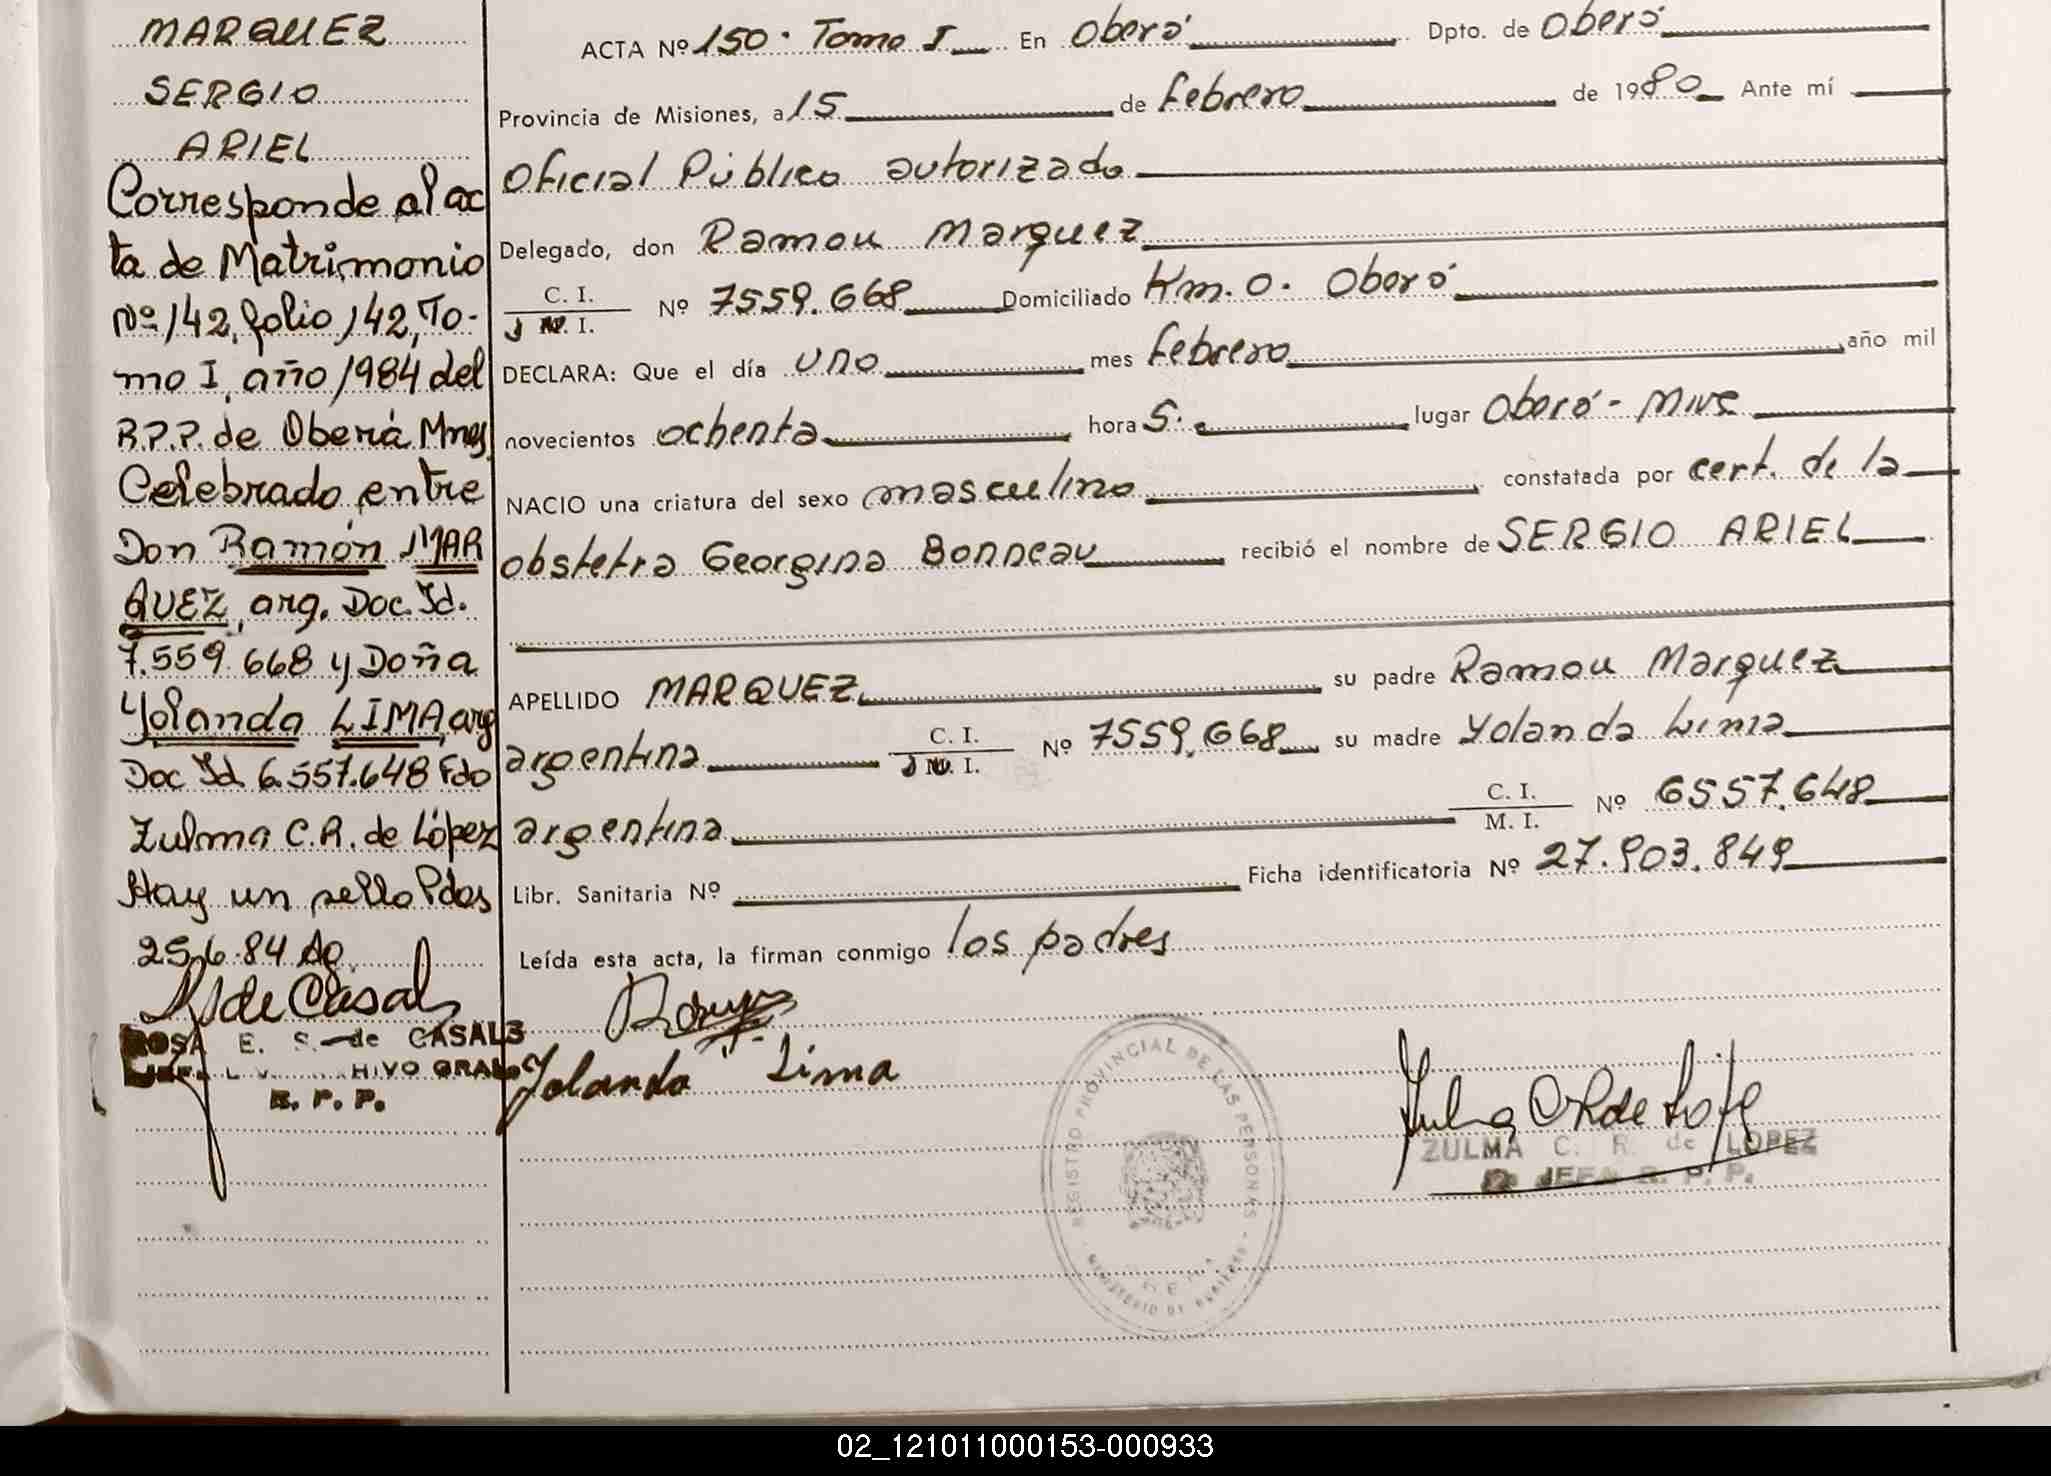 MARQUEZ
SERGIO
ARIEL
Corresponde al ac
ta de Matrimonio
Nº 142, folio 142, To-
mo I, año 1984 del
R.P.P. de Oberá Mnes
Celebrado entre
Don Ramón MAR
QUEZ, arg. Doc. Id.
7.559.668 y Doña
Yolanda LIMA, arg
Doc Id 6.557.648 Fdo
Zulma C.R. de López
Hay un sello Pdas
25.6.84 Ag.
de Casals
ROSA E. S. de CASALS
HIVO GRAL
R. P. P.
ACTA Nº 150. Tomo I En Oberá Dpto. de Oberá
Provincia de Misiones, a 15 de Febrero de 1980 Ante mí
Oficial Público autorizado
Delegado, don Ramon Marquez
C. I. Nº 7559.668 Domiciliado Km. 0. Oberá
M. I.
DECLARA: Que el día uno mes Febrero año mil
novecientos ochenta hora 5. lugar Oberá - Mnes
NACIO una criatura del sexo masculino constatada por cert. de la
obstetra Georgina Bonneau recibió el nombre de SERGIO ARIEL
APELLIDO MARQUEZ su padre Ramon Marquez
argentina C. I. Nº 7559.668 su madre Yolanda Lima
M. I.
argentina C. I. Nº 6557.648
M. I.
Libr. Sanitaria Nº Ficha identificatoria Nº 27.903.849
Leída esta acta, la firman conmigo los padres
Yolanda Lima
REGISTRO PROVINCIAL DE LAS PERSONAS
Zulma C R de López
ZULMA C. R. de LOPEZ
JEFA R. P. P.
02_121011000153-000933